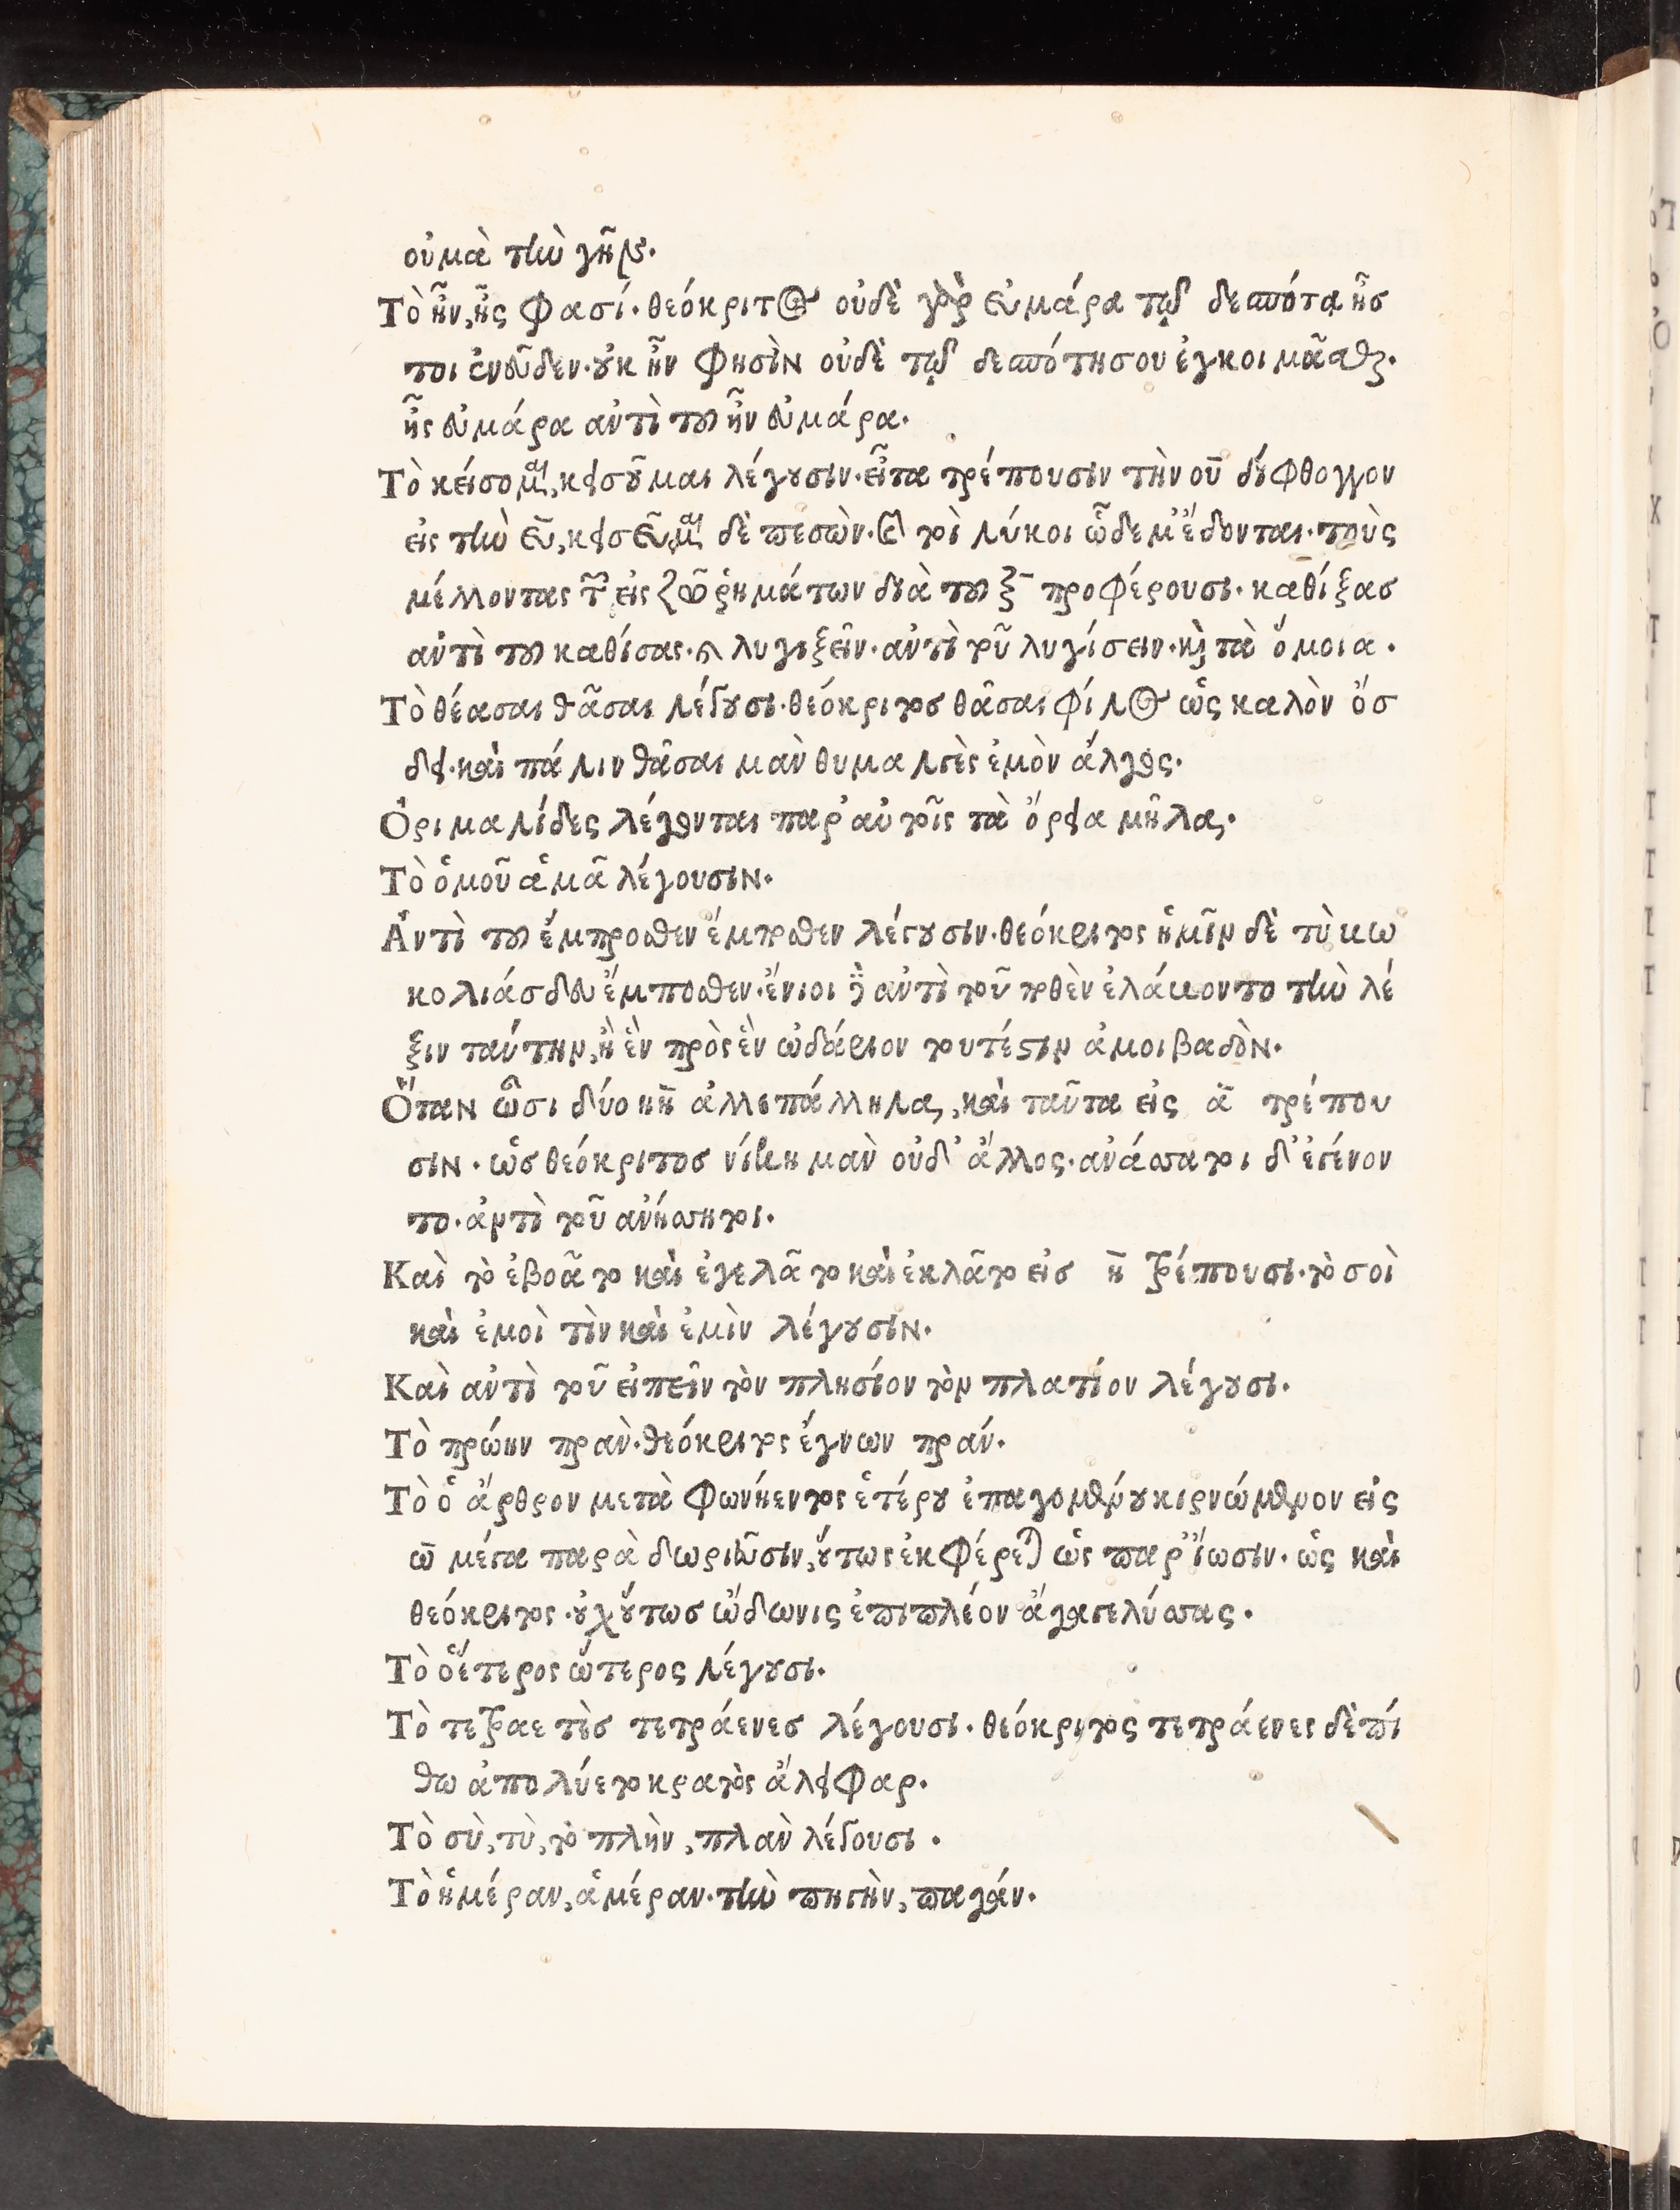 οὐ μὰ τὴν γῆν.
Τὸ ἦν, ἦς φασί. θεόκριτος οὐδὲ γὰρ εὐμάρα τῷ δεσπότᾳ ἦσ
τοι ἐνεύδεν. οὐκ ἦν φησὶν οὐδὲ τῷ δεσπότῃ σου ἐγκοιμᾶσθαι.
ἦς εὐμάρα ἀντὶ τοῦ ἦν εὐμάρα.
Τὸ κείσομαι, κεισοῦμαι λέγουσιν. εἶτα τρέπουσιν τὴν οῦ δίφθογγον
εἰς τὴν εῦ, κεισεῦμαι δὲ πεσών. καὶ τοὶ λύκοι ὧδε μ' ἔδονται. τοὺς
μέλλοντας τῶν εἰς ζω ῥημάτων διὰ τοῦ ξ προφέρουσι. καθίξας
ἀντὶ τοῦ καθίσας. καὶ λυγιξεῖν. ἀντὶ τοῦ λυγίσειν. καὶ τὰ ὅμοια.
Τὸ θέασαι θᾶσαι λέγουσι. θεόκριτοσ θᾶσαι φίλος ὡς καλὸν ὄσ
δει. καὶ πάλιν θᾶσαι μὰν θυμαλγὲς ἐμὸν ἄλγος.
Ὁριμαλίδες λέγονται παρ' αὐτοῖς τὰ ὄρεια μῆλα.
Τὸ ὁμοῦ ἁμᾶ λέγουσιν.
Ἀντὶ τοῦ ἔμπροσθεν ἔμποθεν λέγουσιν. θεόκριτος ἡμῖν δὲ τὺ κω
κολιάσδευ ἔμποθεν. ἔνιοι δὲ ἀντὶ τοῦ ποθὲν ἐλάμοντο τὴν λέ
ξιν ταύτην, ἢ ἓν πρὸς ἓν ᾠδάριον τουτέστιν ἀμοιβαδὸν.
Ὅταν ὦσι δύο ηη ἀλλεπάλληλα, καὶ ταῦτα εἰς ᾱ τρέπου
σιν. ὡσ θεόκριτοσ νίκη μὰν οὐδ' ἄλλος. ἀνάσσατοι δ' ἐγένον
το. ἀντὶ τοῦ ἀνήσσητοι.
Καὶ τὸ ἐβοᾶτο καὶ ἐγελᾶτο καὶ ἐκλᾶτο εἰσ η τρέπουσι. τὸ σοὶ
καὶ ἐμοὶ τὶν καὶ ἐμὶν λέγουσιν.
Καὶ ἀντὶ τοῦ εἰπεῖν τὸν πλησίον τὸν πλατίον λέγουσι.
Τὸ πρώην πρὰν. θεόκριτος ἔγνων πράν.
Τὸ ὁ ἄρθρον μετὰ φωνήεντος ἑτέρου ἐπαγομένου κιρνώμενον εἰς
ω μέγα παρὰ δωριεῦσιν, οὕτως ἐκφέρεται ὡς παρ' ἴωσιν. ὡς καὶ
θεόκριτος. οὐχ οὕτωσ ὥδωνις ἐπιπλέον ἄγαγε λύσσας.
Τὸ ὁ ἕτερος ὥτερος λέγουσι.
Τὸ τετραετὲσ τετράενεσ λέγουσι. θεόκριτος τετράενες δὲ πί
θω ἀπολύετο κρατὸς ἄλειφαρ.
Τὸ σὺ, τὺ, τὸ πλὴν, πλὰν λέγουσι.
Τὸ ἡμέραν, ἁμέραν. τὴν πηγὴν, παγάν.